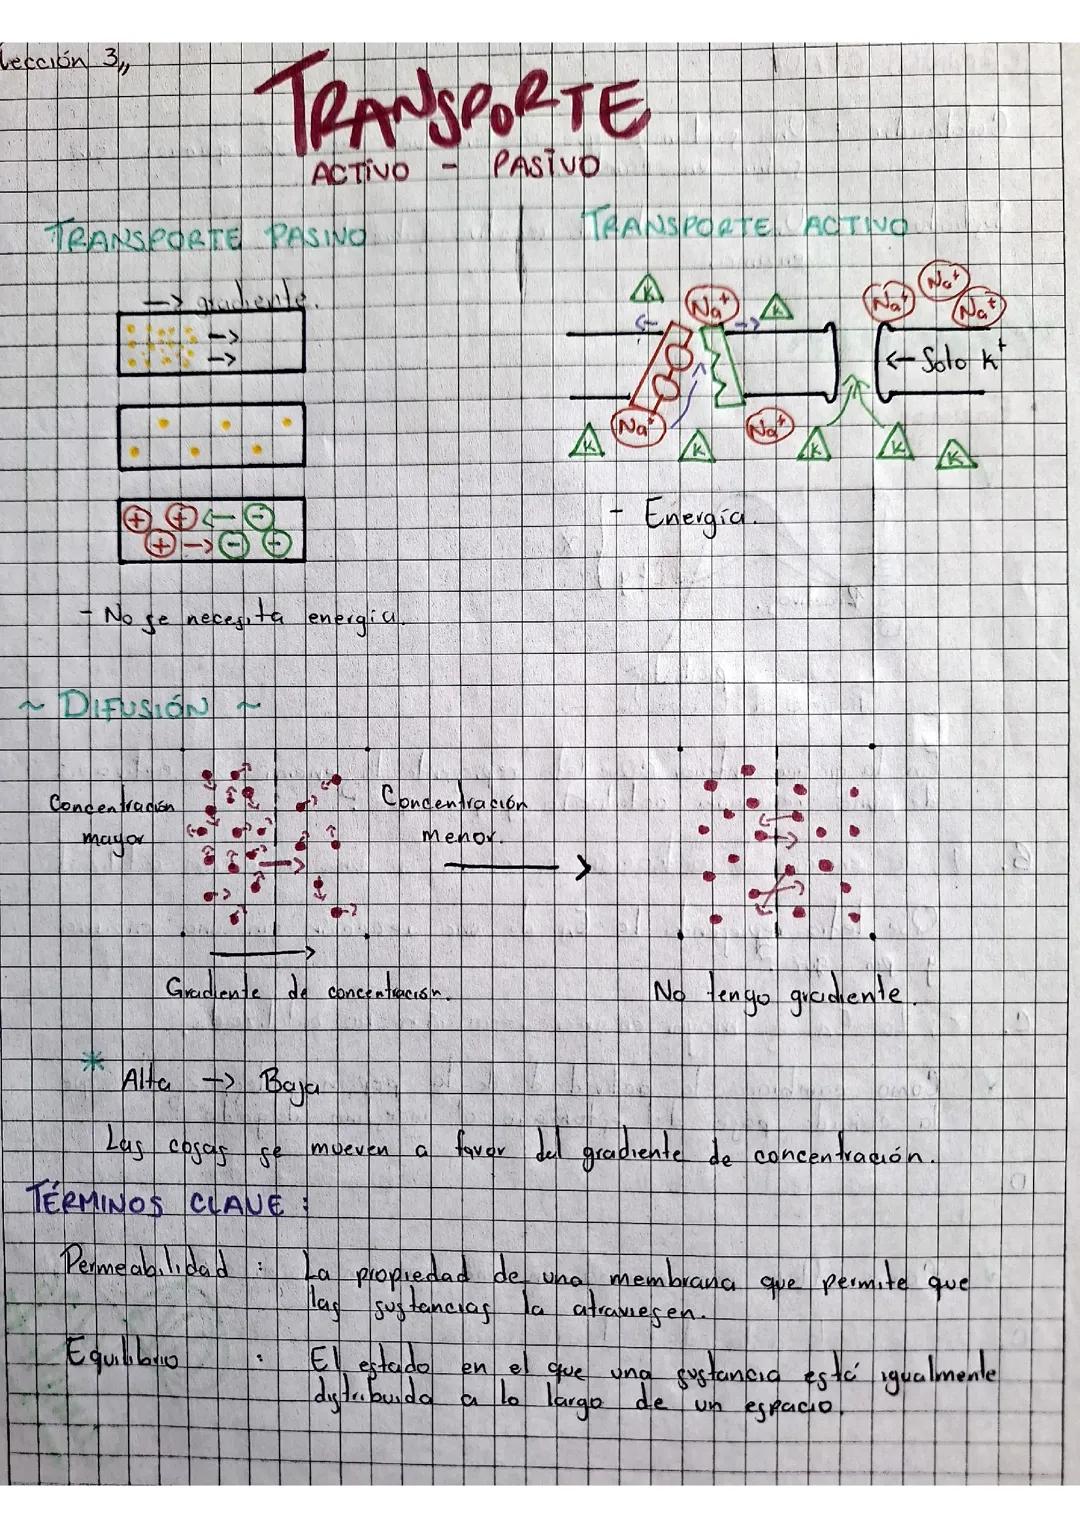 Lección 3,,
TRANSPORTE
ACTIVO - PASIVO
TRANSPORTE PASIVO
-> gradiente.
+ + -
+ - -
- No se necesita energía.
TRANSPORTE ACTIVO
K Na+ K Na+ Na+ Na+
<- Solo K+
K Na+ K Na+ K K K
- Energía.
~ DIFUSIÓN ~
Concentración
mayor
Concentración
menor.
Gradiente de concentración.
No tengo gradiente.
* Alta -> Baja
Las cosas se mueven a favor del gradiente de concentración.
TÉRMINOS CLAVE :
Permeabilidad : La propiedad de una membrana que permite que
las sustancias la atraviesen.
Equilibrio : El estado en el que una sustancia está igualmente
distribuida a lo largo de un espacio.